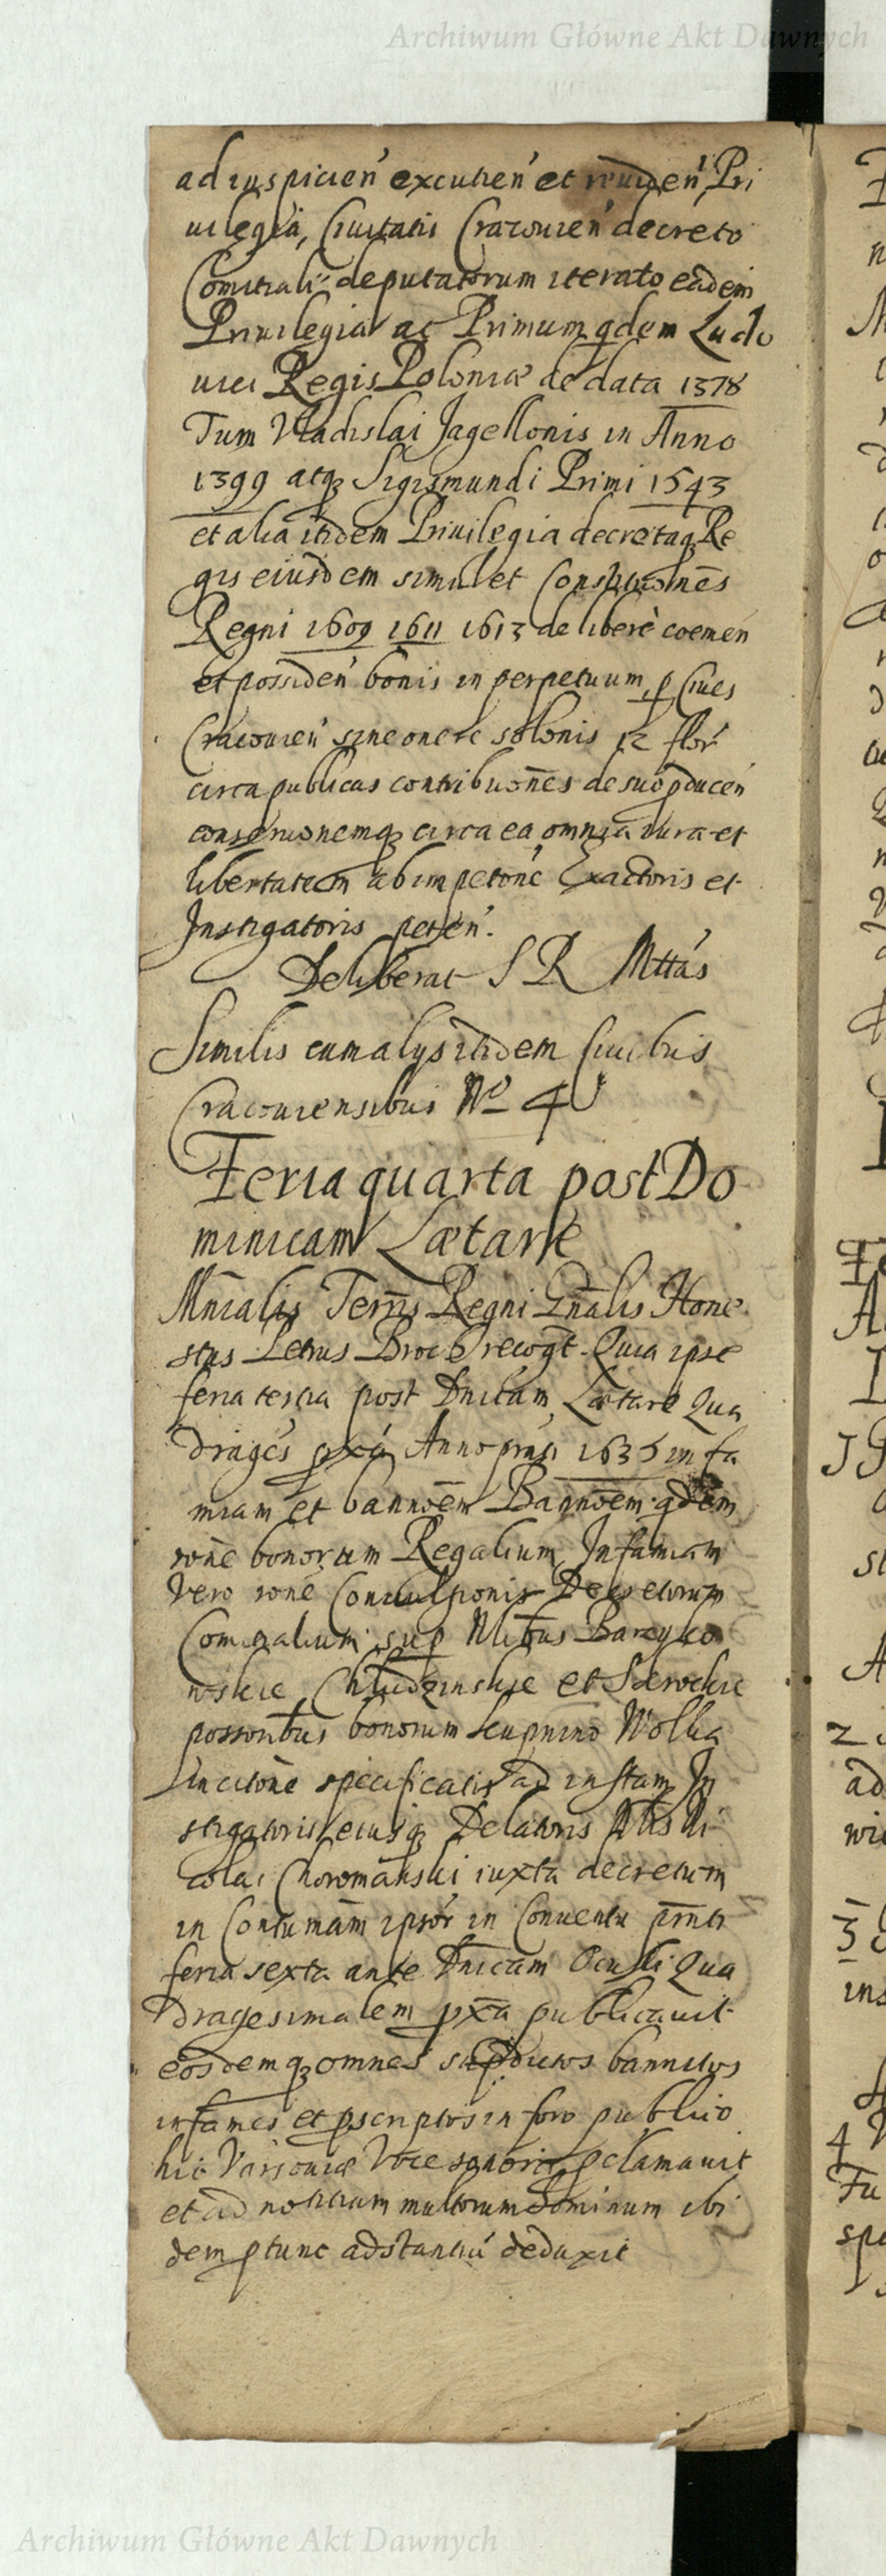 Archiwum Główne Akt Dawnych
ad inspicien' excutien' et reviden' Pri
uilegia, Ciuitatis Cracouien' decreto
Comitiali deputatorum iterato eadem
Priuilegia ac Primum qdem Ludo
uici Regis Poloniæ de data 1378
Tum Vladislai Jagellonis in Anno
1399 atq3 Sigismundi Primi 1543
et alia itidem Priuilegia decretaq3 Re
gis eiusdem simul et Constitutiones
Regni 1609 1611 1613 de liberè coemen
et possiden' bonis in perpetuum, p Ciues
Cracouien' sine onere solonis 12 flor'
circa publicas contribuones de suo pducen
conseruonemq3 circa ea omnia iura et
libertatem ab impetone Exactoris et
Instigatoris peten'.
Deliberat S R Mttás
Similis cum alys itidem Ciuibus
Cracouiensibus No 40
Feria quarta post Do
minicam Lætare
Mnialis Terris Regni Gnalis Hone
stus Petrus Broch recogt. Quia ipse
feria tertia post Dnicam Lætare Qua
drages pxa Anno pnti 1635 infa
miam et bannoem Bannoem qdem
rone bonorum Regalium Infamiam
Vero rone Conuulsionis Decretorum
Comitialium sup Nlibus
Chludzinskie et
possoribus bonorum
in citone specificatis ad instam In
stigatoris eiusq3 Delatoris Nlis Ni
colai Choromanski iuxta decretum
in Contumam ipsor in Conuentu pnti
feria sexta ante Dnicam Oculi Qua
dragesimalem pxa publicauit
eosdemq3 omnes supdictos bannitos
infames et pscriptos in foro publico
hic Varsouiæ Voce sonora pclamauit
et ad notitiam multorum hominum ibi
dem ptunc adstantiu deduxit
Archiwum Główne Akt Dawnych